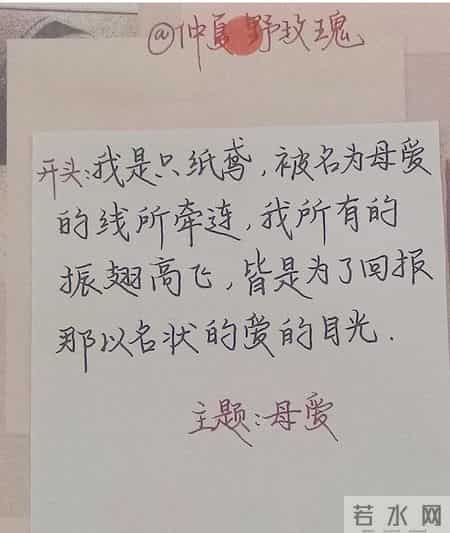 @仲夏野玫瑰
开头:我是只纸鸢,被名为母爱
的线所牵连,我所有的
振翅高飞,皆是为了回报
那以名状的爱的目光.
主题:母爱
若水网